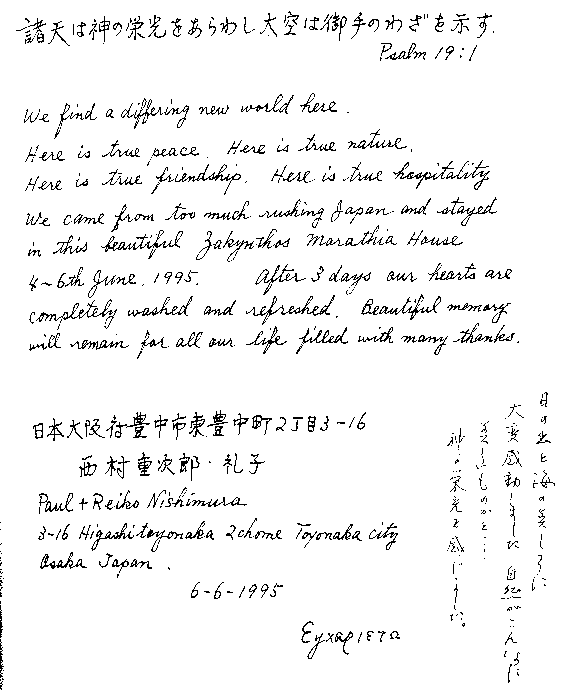 諸天は神の栄光をあらわし大空は御手のわざを示す.
Psalm 19:1
We find a differing new world here.
Here is true peace. Here is true nature.
Here is true friendship. Here is true hospitality
We came from too much rushing Japan and stayed
in this beautiful Zakynthos Marathia House
4~6th June, 1995. After 3 days our hearts are
completely washed and refreshed. Beautiful memory
will remain for all our life filled with many thanks.
日本大阪府豊中市東豊中町2丁目3-16
西村重次郎・礼子
Paul + Reiko Nishimura
3-16 Higashitoyonaka 2chome Toyonaka city
Osaka Japan.
6-6-1995
Ευχαριστω
日の出と海の美しさに
大変感動しました 自然がこんなに
美しいものかと...
神の栄光を感じました。